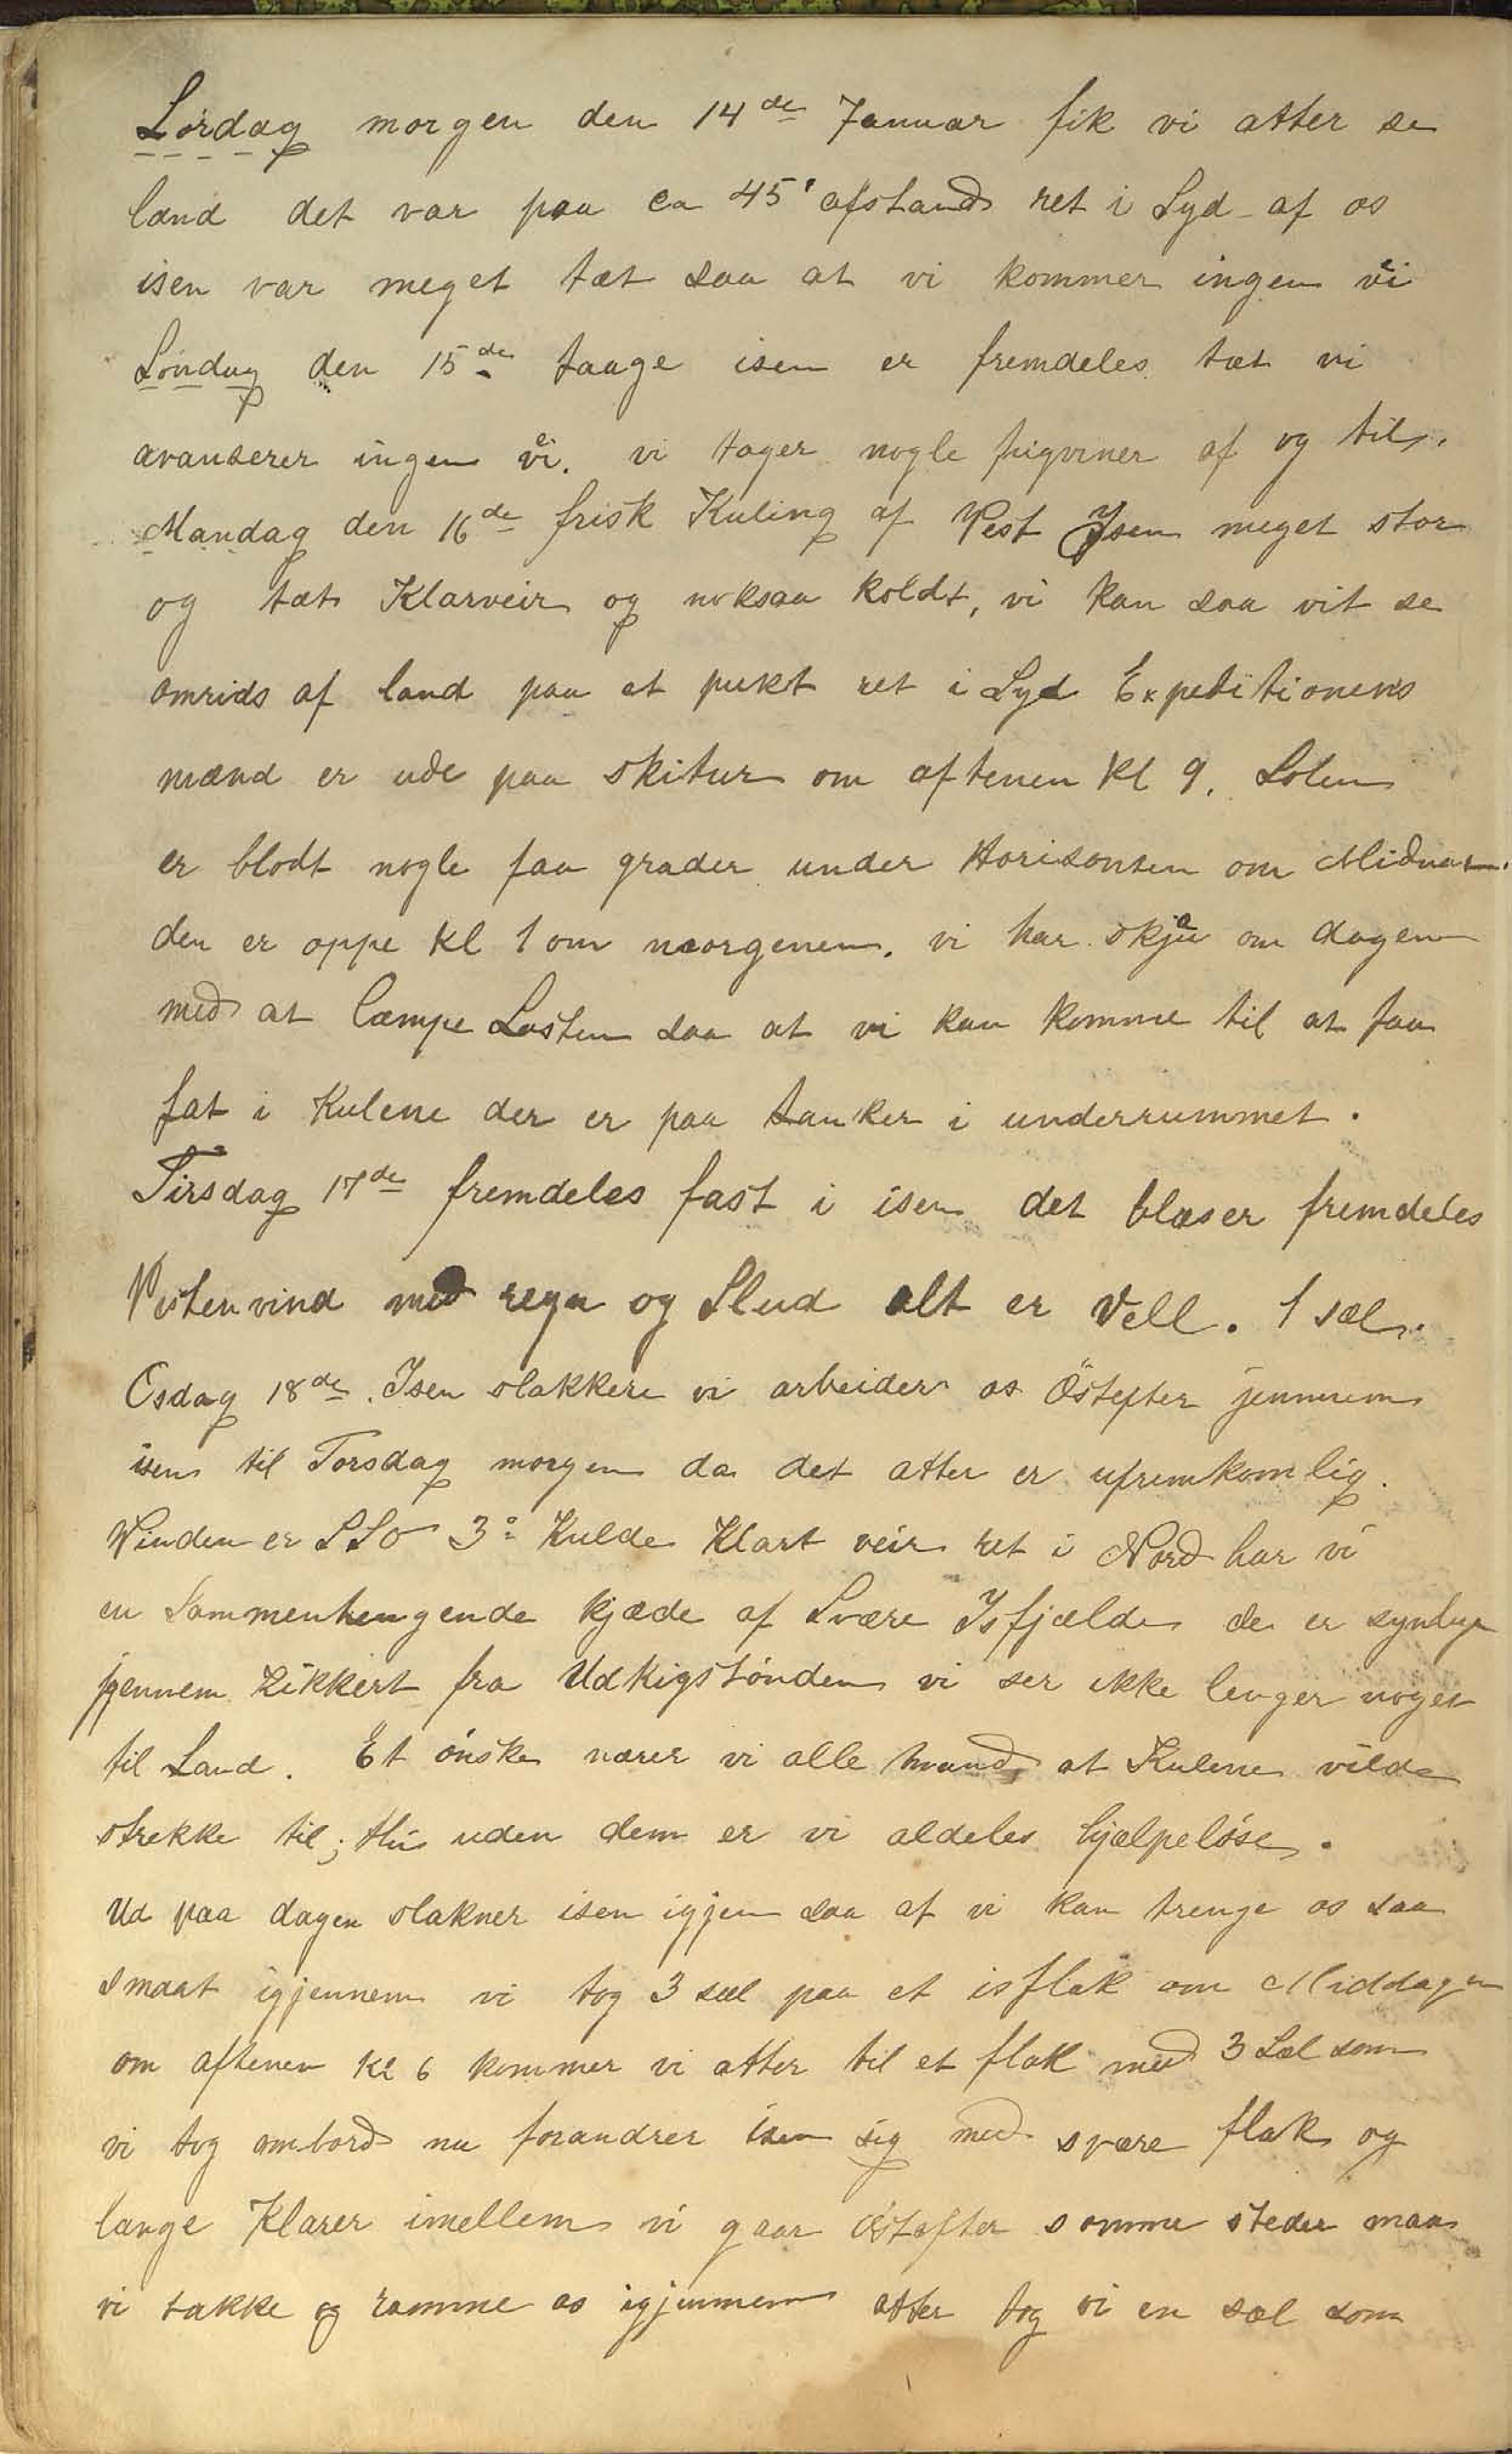 Lördag morgen den 14de Januar fik vi atter se
land det var paa ca 45' afstand ret i Syd af os
isen var meget tæt saa at vi kommer ingen vei
Söndag den 15de taage isen er fremdeles tæt vi
avanserer ingen vei. vi tager nogle pigviner af og til.
Mandag den 16de frisk Kuling af Vest Isen meget stor
og tæt Klarveir og noksaa koldt, vi kan saa vit se
omrids af land paa et pukt ret i Syd Expeditionens
mænd er ude paa skitur om aftenen Kl 9. Solen
er blodt nogle faa grader under Horisonten om Midnat.
den er oppe Kl 1 om morgenen. vi har skjœ om dagen
med at læmpe Lasten saa at vi kan komme til at faa
fat i Kulene der er paa tanker i underrummet.
Tirsdag 17de fremdeles fast i isen det blæser fremdeles
Vestenvind med regn og Slud alt er Vell. 1 sæl.
Osdag 18de. Isen slakkere vi arbeider os Östefter jennem
isen til Torsdag morgen da det atter er ufremkomlig.
Vinden er SSO 3° Kulde Klart veir ret i Nord har vi
en Sammenhengende kjæde af Svære Isfjælde de er synlige
jgennem Kikkert fra Udkigstönden vi ser ikke lenger noget
til Land. Et önske nærer vi alle mand at Kulene vilde
strekke til; thi uden dem er vi aldeles hjælpelöse.
Ud paa dagen slakner isen igjen saa at vi kan trenge os saa
smaat igjennem vi tog 3 sæl paa et isflak om Middagen
om aftenen Kl 6 kommer vi atter til et flak med 3 Sæl som
vi tog ombord nu forandrer isen sig med svære flak og
lange Klarer imellem vi gaar Östefter somme steder maa
vi takke og ramme os igjennem atter tog vi en sæl som